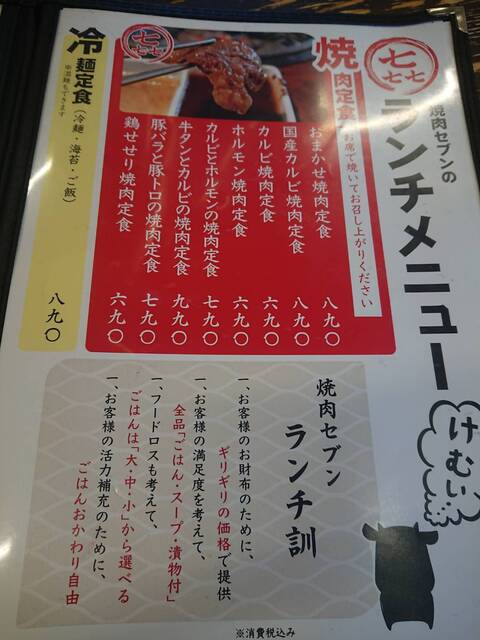 七七七
焼肉セブンの
ランチメニュー
けむい
焼肉定食
お席で焼いてお召し上がりください
おまかせ焼肉定食 八九〇
国産カルビ焼肉定食 八九〇
カルビ焼肉定食 六九〇
ホルモン焼肉定食 六九〇
カルビとホルモンの焼肉定食 七九〇
牛タンとカルビの焼肉定食 九九〇
豚バラと豚トロの焼肉定食 七九〇
鶏せせり焼肉定食 六九〇
七七七
冷麺定食(冷麺・海苔・ご飯) 八九〇
焼肉セブン
ランチ訓
一、お客様のお財布のために、
ギリギリの価格で提供
一、お客様の満足度を考えて、
全品「ごはん・スープ・漬物付」
一、フードロスも考えて、
ごはんは「大・中・小」から選べる
一、お客様の活力補充のために、
ごはんおかわり自由
※消費税込み